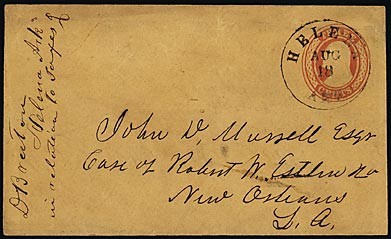 D Breston
Helena Ark
in relation to
HELE
AUG
18
John D. Murrell Esqr
Care of Robert W. Estlin & Co
New Orleans
L.A.